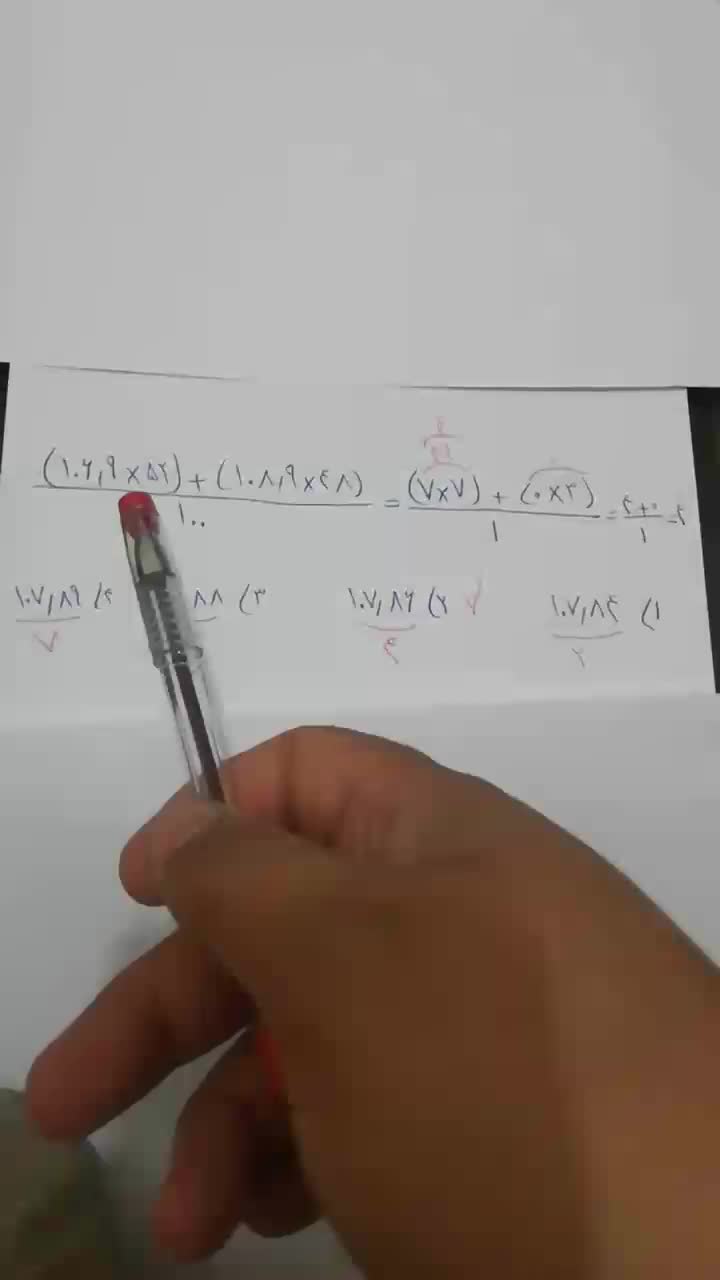 (۱۰۶,۹×۵۲)+(۱۰۸,۹×۴۸) / ۱۰۰ = (۷×۷)+(۰×۳) / ۱ = ۴+۰ / ۱ = ۴
۱) ۱۰۷,۸۴ ۲) ۱۰۷,۸۶ ۳) ۸۸ ۴) ۱۰۷,۸۹
۲ ۴ ۷